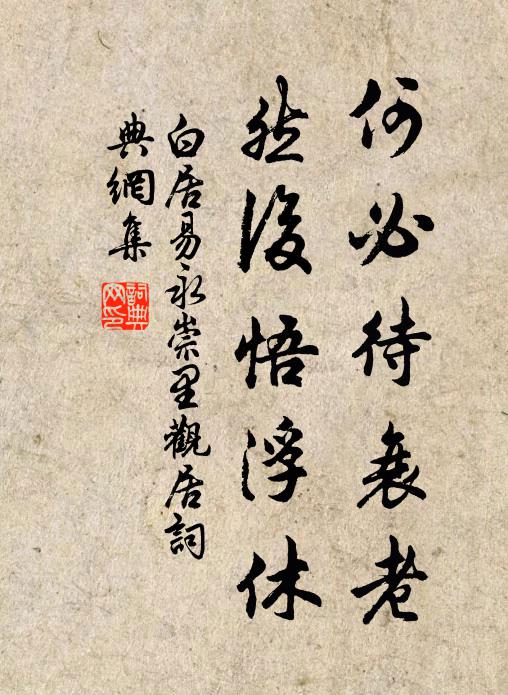 何必待衰老
然後悟浮休
白居易永崇里觀居詞
典網集
詞典網印